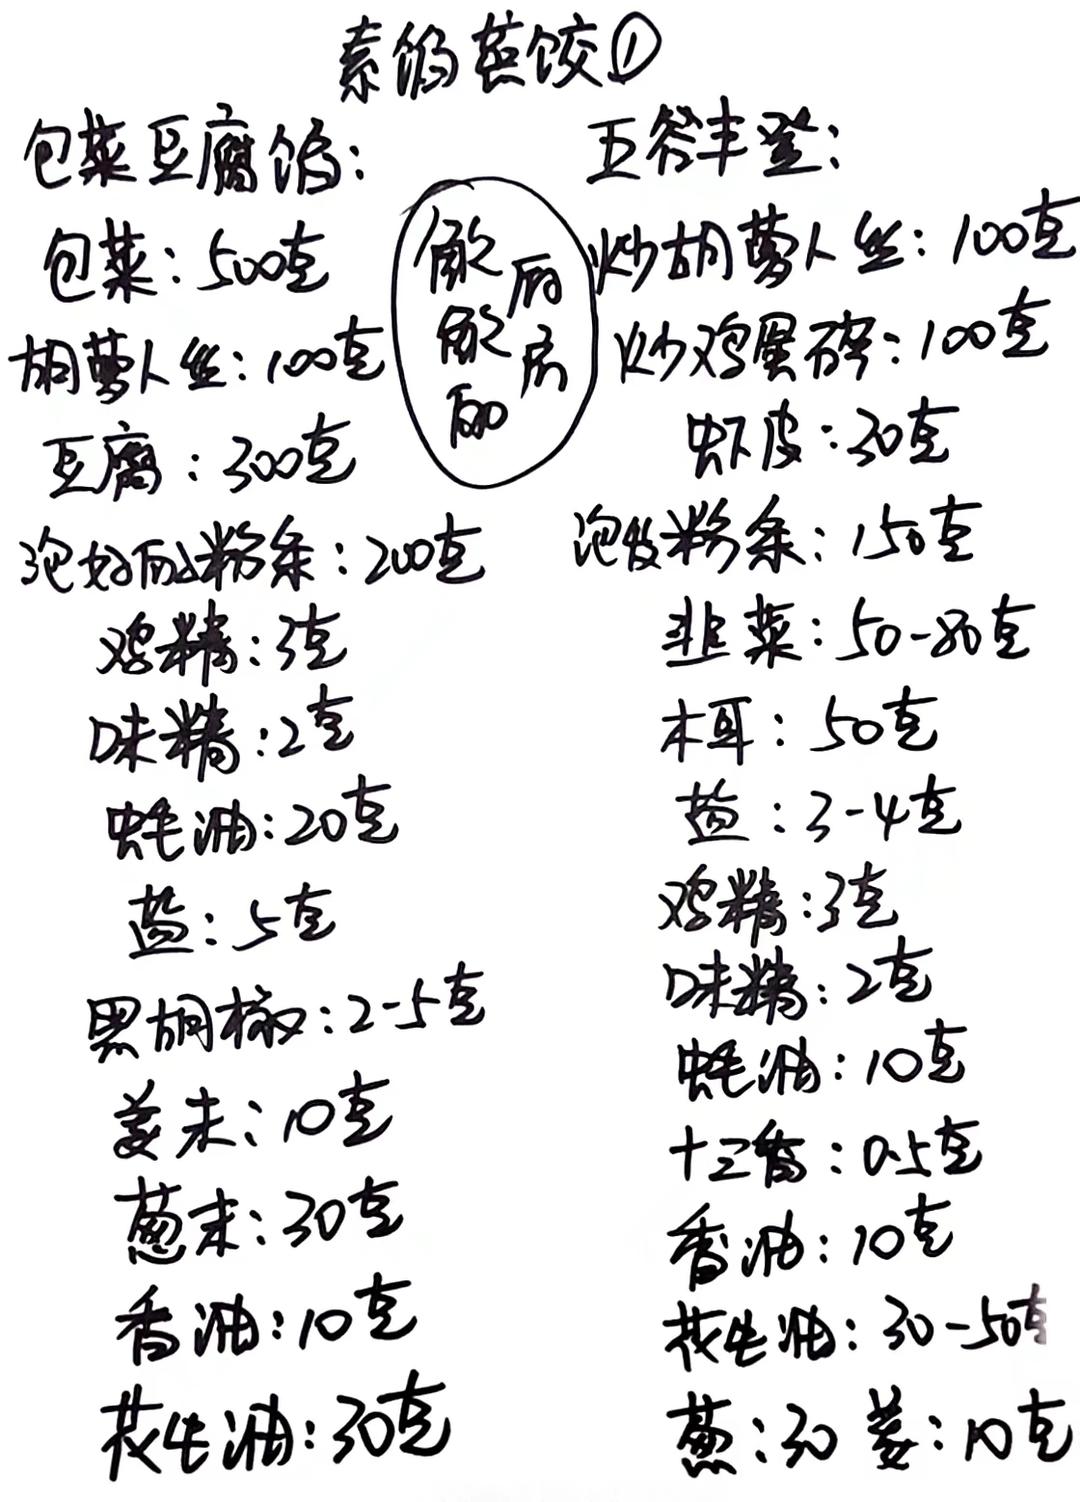 素馅蒸饺①
包菜豆腐馅:
包菜:500克
胡萝卜丝:100克
豆腐:300克
泡好的粉条:200克
鸡精:3克
味精:2克
蚝油:20克
盐:5克
黑胡椒:2-5克
姜末:10克
葱末:30克
香油:10克
花生油:30克
五谷丰登:
炒胡萝卜丝:100克
炒鸡蛋碎:100克
虾皮:30克
泡发粉条:150克
韭菜:50-80克
木耳:50克
盐:3-4克
鸡精:3克
味精:2克
蚝油:10克
十三香:0.5克
香油:10克
花生油:30-50克
葱:30 姜:10克